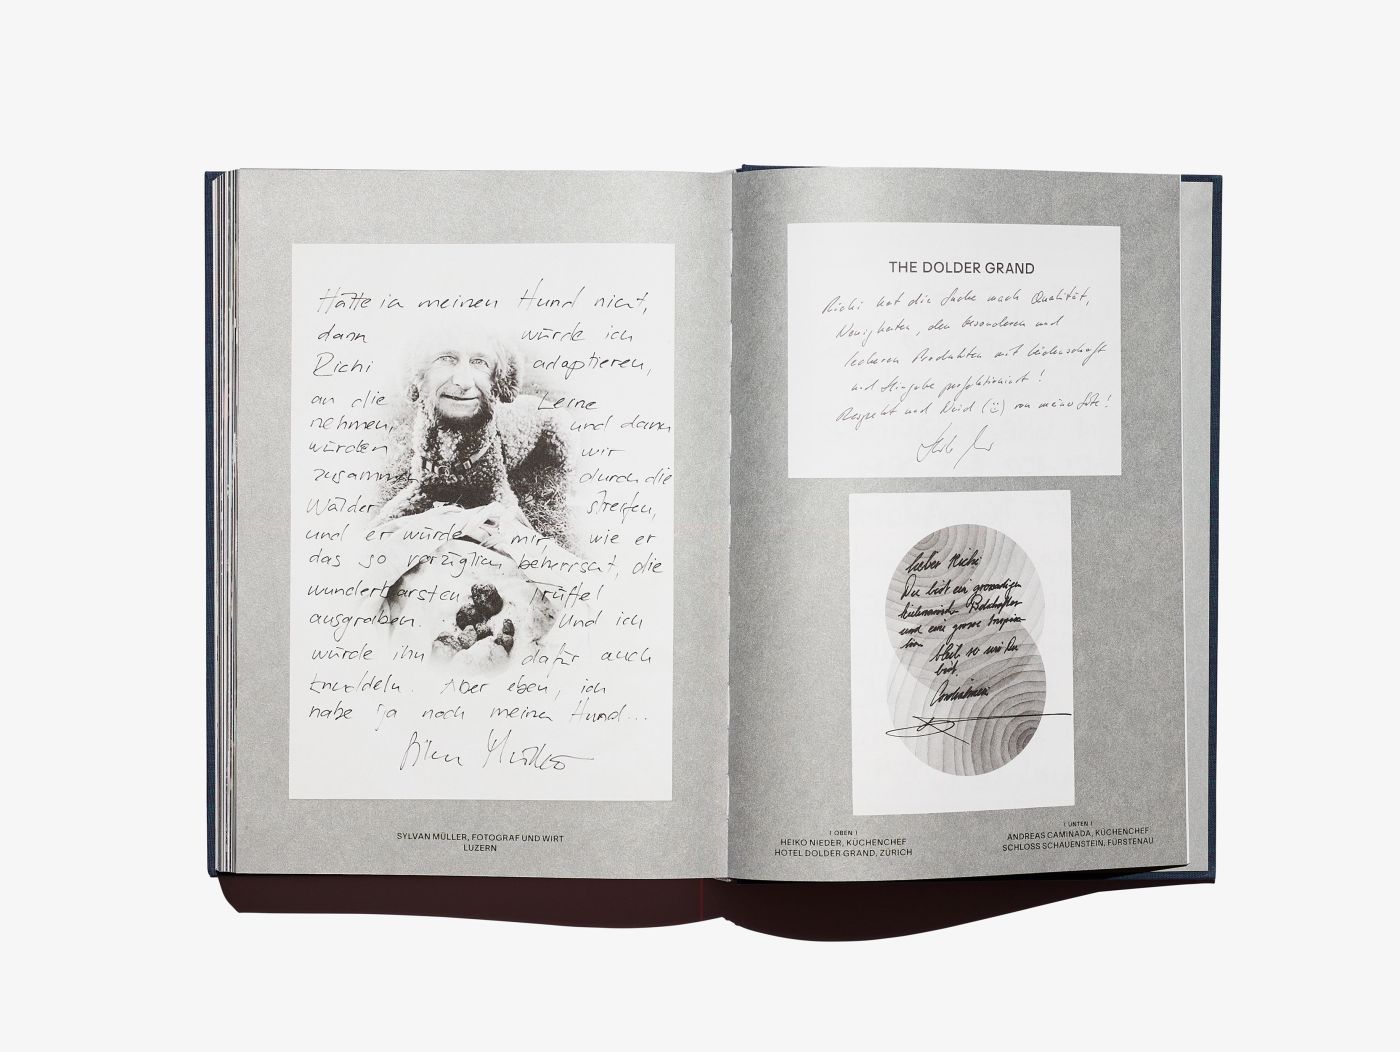 Hätte ich meinen Hund nicht,
dann würde ich
Richi adaptieren,
an die Leine
nehmen, und dann
würden wir
zusammen durch die
Wälder streifen,
und er würde mir, wie er
das so vorzüglich beherrscht, die
wunderbarsten Trüffel
ausgraben. Und ich
würde ihn dafür auch
knuddeln. Aber eben, ich
habe ja noch meinen Hund...
SYLVAN MÜLLER, FOTOGRAF UND WIRT
LUZERN
THE DOLDER GRAND
Richi hat die Suche nach Qualität,
Neuigkeiten, den besonderen und
leckeren Produkten mit Leidenschaft
und Hingabe perfektioniert!
Respekt und Neid (☺) von meiner Seite!
lieber Richi
Du bist ein grossartiger
kulinarischer Botschafter
und eine grosse Inspira-
tion bleib so wie Du
bist.
( OBEN )
HEIKO NIEDER, KÜCHENCHEF
HOTEL DOLDER GRAND, ZÜRICH
( UNTEN )
ANDREAS CAMINADA, KÜCHENCHEF
SCHLOSS SCHAUENSTEIN, FÜRSTENAU